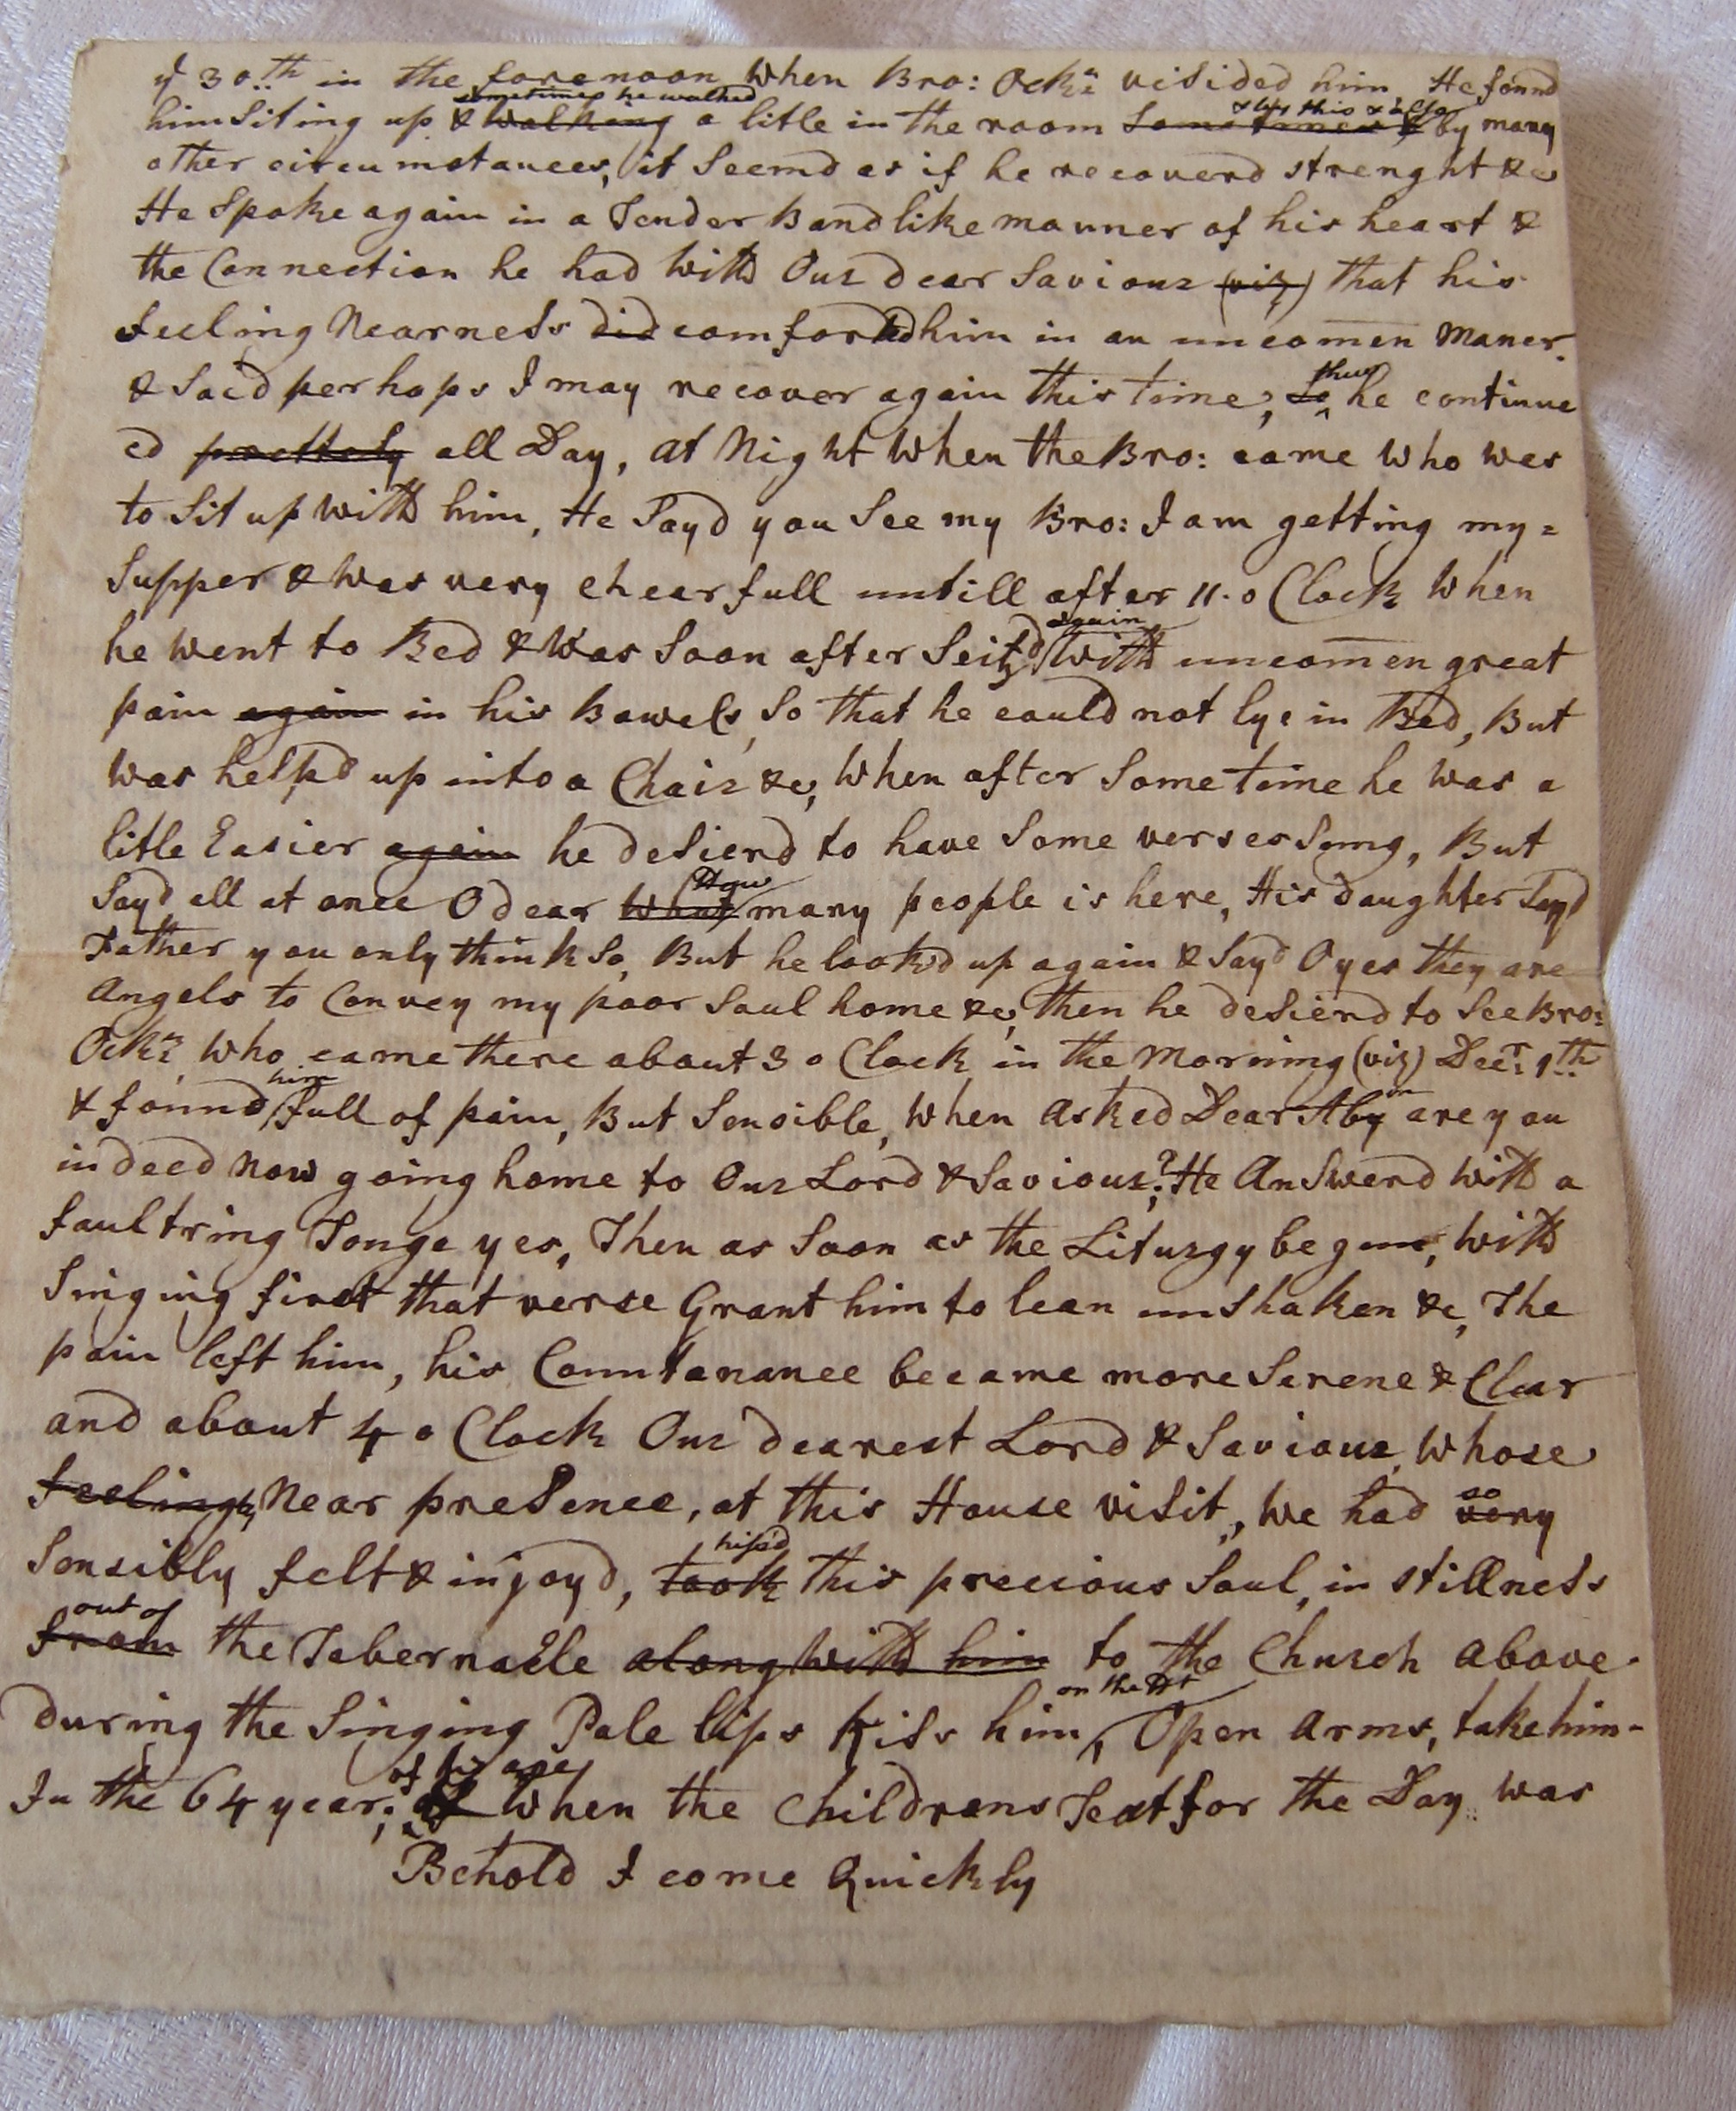 ye 30th in the forenoon When Bro: Ockn visided him, He found
sometimes he walked & by this & also
him Siting up & walking a litle in the room Sometimes & by many
other circumstances, it Seemd as if he recoverd strenght &c
He Spoke again in a Tender Bandlike manner of his heart &
the Connection he had with Our dear Saviour (viz) that his
feeling Nearness did comforted him in an uncomen Maner.
thus
& Said perhaps I may recover again this time, So he continue
ed prettely all Day, at Night When the Bro: came who was
to Sit up with him, He Sayd you See my Bro: I am getting my=
Supper & was very chearfull untill after 11. o Clock When
again
he went to Bed & Was Soon after Seitzd with uncomen great
pain again in his Bowels, So that he could not lye in Bed, But
was helpd up into a Chair &c, When after Some time he was a
litle Easier again he desierd to have Some verses Sung, But
How
Sayd all at once O dear What many people is here, His daughter Sayd
Father you only think So, But he lookd up again & Sayd O yes they are
Angels to Convey my poor Soul home &c, then he desierd to See Bro:
Ockn, Who came there about 3 o Clock in the Morning (viz) Decr: 1th
him
& found full of pain, But Sensible, When Asked Dear Abyn are you
indeed Now going home to Our Lord & Saviour? He Answerd with a
faultring Tonge yes, Then as Soon as the Liturgy begun, with
Singing first that verse Grant him to lean unshaken &c, The
pain left him, his Countanance became more Serene & Clear
and about 4 o Clock Our dearest Lord & Saviour, Whose
so
feelingly Near presence, at this House visit, We had very
kiss'd
Sensibly felt & injoyd, took this precious Soul, in stillness
out of
from the Tabernacle along with him to the Church above
on the
during the Singing Pale lips Kiss him, Open Arms, take him-
of his age
In the 64 year; When the Childrens Text for the Day was
Behold I come Quickly